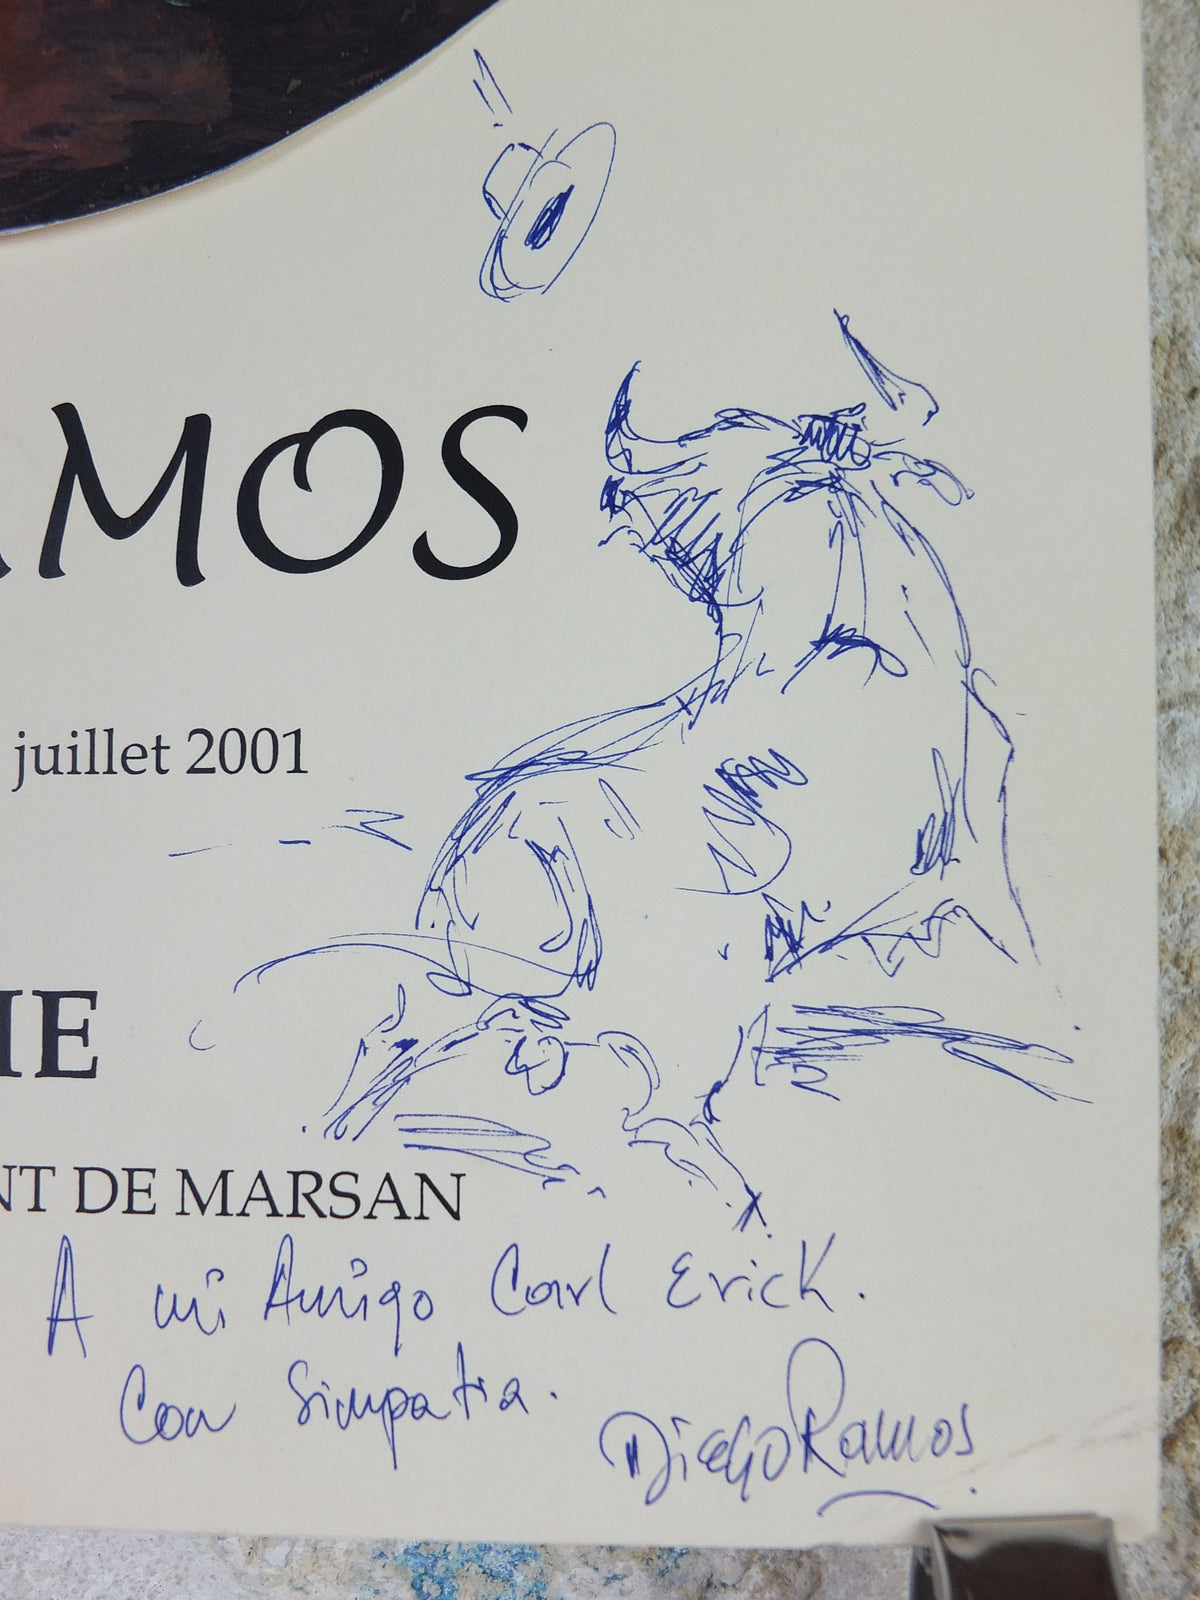 AMOS
juillet 2001
IE
NT DE MARSAN
A mi Amigo Carl Erick.
Con Simpatia.
Diego Ramos